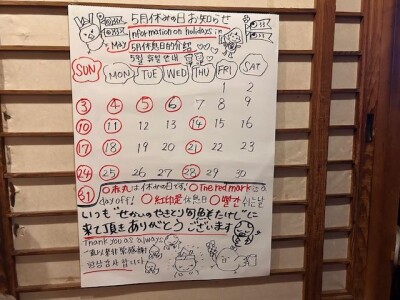 5月休みの日お知らせ
Information on holidays in May
5月休憩日的介紹
5월 휴일 안내
SUN MON TUE WED THU FRI SAT
1 2
3 4 5 6 7 8 9
10 11 12 13 14 15 16
17 18 19 20 21 22 23
24 25 26 27 28 29 30
31
○赤丸は休みの日です! ○The red mark is a
day off! ○紅印是休憩日 ○빨간 쉬는날
いつも"せかいのやきとり旬魚たけし"に
来て頂きありがとうございます
Thank you as always
항상감사합니다